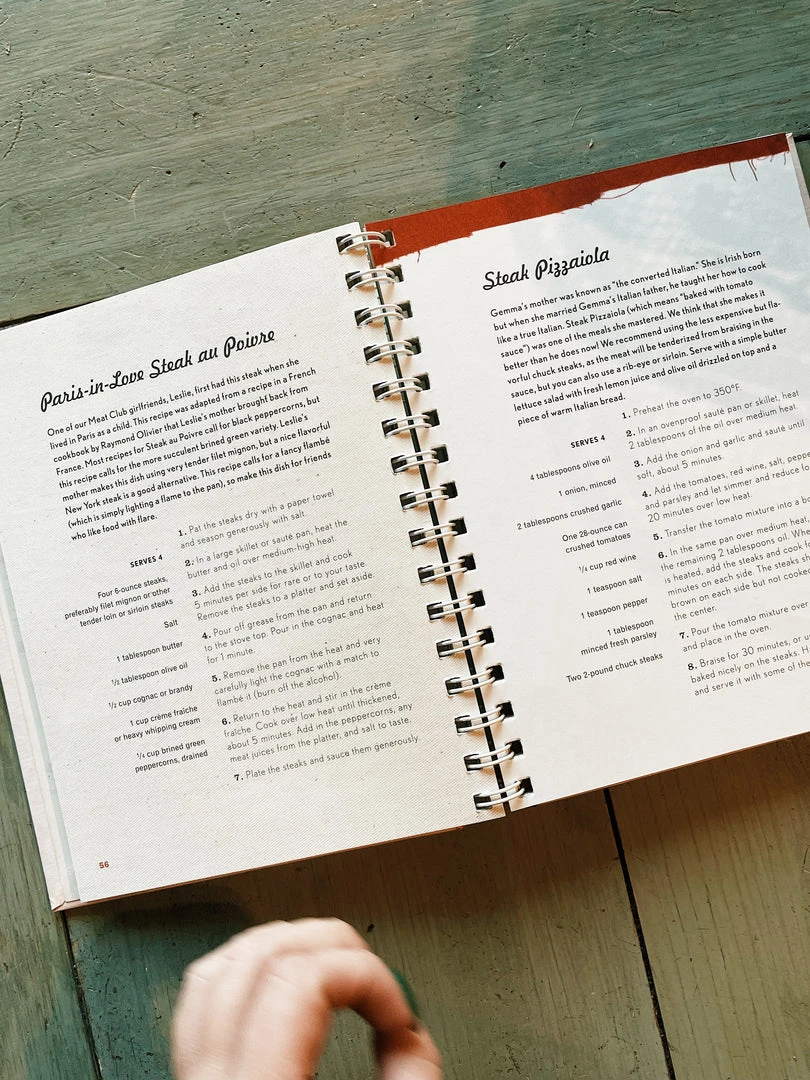 Paris-in-Love Steak au Poivre
One of our Meat Club girlfriends, Leslie, first had this steak when she
lived in Paris as a child. This recipe was adapted from a recipe in a French
cookbook by Raymond Olivier that Leslie's mother brought back from
France. Most recipes for Steak au Poivre call for black peppercorns, but
this recipe calls for the more succulent brined green variety. Leslie's
mother makes this dish using very tender filet mignon, but a nice flavorful
New York steak is a good alternative. This recipe calls for a fancy flambé
(which is simply lighting a flame to the pan), so make this dish for friends
who like food with flare.
SERVES 4
Four 6-ounce steaks,
preferably filet mignon or other
tender loin or sirloin steaks
Salt
1 tablespoon butter
1/2 tablespoon olive oil
1/2 cup cognac or brandy
1 cup crème fraîche
or heavy whipping cream
1/4 cup brined green
peppercorns, drained
1. Pat the steaks dry with a paper towel
and season generously with salt.
2. In a large skillet or sauté pan, heat the
butter and oil over medium-high heat.
3. Add the steaks to the skillet and cook
5 minutes per side for rare or to your taste.
Remove the steaks to a platter and set aside.
4. Pour off grease from the pan and return
to the stove top. Pour in the cognac and heat
for 1 minute.
5. Remove the pan from the heat and very
carefully light the cognac with a match to
flambé it (burn off the alcohol).
6. Return to the heat and stir in the crème
fraîche. Cook over low heat until thickened,
about 5 minutes. Add in the peppercorns, any
meat juices from the platter, and salt to taste.
7. Plate the steaks and sauce them generously.
56
Steak Pizzaiola
Gemma's mother was known as "the converted Italian." She is Irish born
but when she married Gemma's Italian father, he taught her how to cook
like a true Italian. Steak Pizzaiola (which means "baked with tomato
sauce") was one of the meals she mastered. We think that she makes it
better than he does now! We recommend using the less expensive but fla-
vorful chuck steaks, as the meat will be tenderized from braising in the
sauce, but you can also use a rib-eye or sirloin. Serve with a simple butter
lettuce salad with fresh lemon juice and olive oil drizzled on top and a
piece of warm Italian bread.
SERVES 4
4 tablespoons olive oil
1 onion, minced
2 tablespoons crushed garlic
One 28-ounce can
crushed tomatoes
1/4 cup red wine
1 teaspoon salt
1 teaspoon pepper
1 tablespoon
minced fresh parsley
Two 2-pound chuck steaks
1. Preheat the oven to 350°F.
2. In an ovenproof sauté pan or skillet, heat
2 tablespoons of the oil over medium heat.
3. Add the onion and garlic and sauté until
soft, about 5 minutes.
4. Add the tomatoes, red wine, salt, peppe
and parsley and let simmer and reduce fo
20 minutes over low heat.
5. Transfer the tomato mixture into a bo
6. In the same pan over medium heat,
the remaining 2 tablespoons oil. Whe
is heated, add the steaks and cook f
minutes on each side. The steaks sh
brown on each side but not cooked
the center.
7. Pour the tomato mixture over
and place in the oven.
8. Braise for 30 minutes, or u
baked nicely on the steaks. H
and serve it with some of the